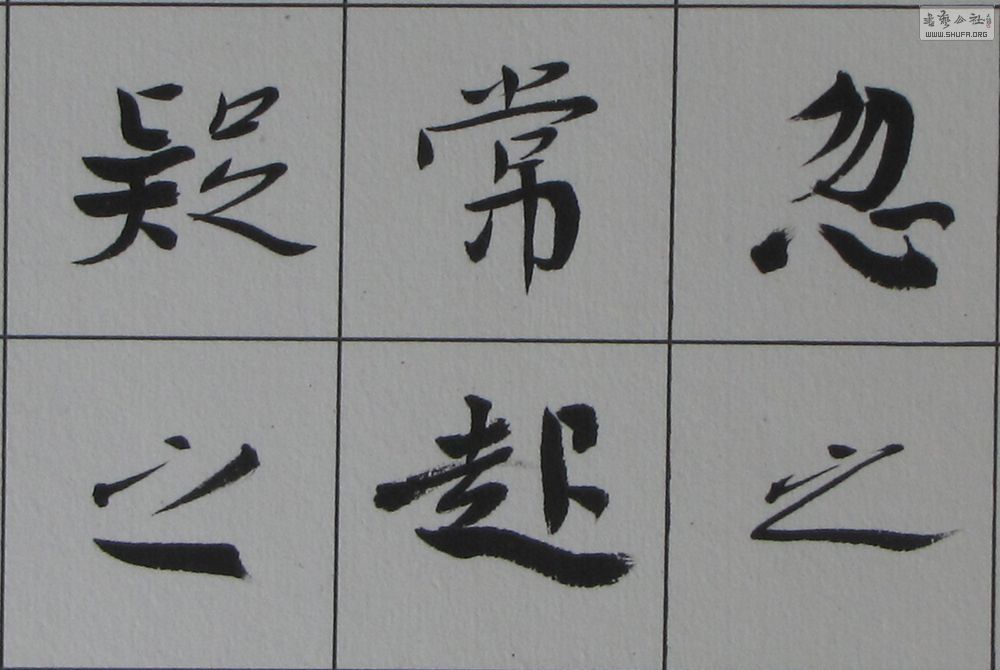 忽之
常起
疑之
書藝公社
WWW.SHUFA.ORG